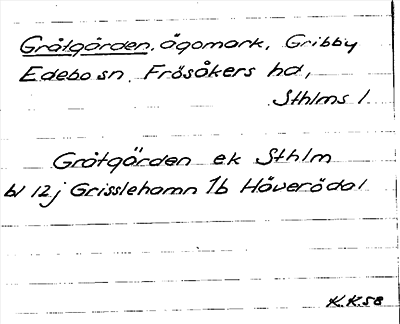 Gråtgården, ägomark, Gribby
Edebo sn, Frösåkers hd,
Sthlms l
Gråtgärden ek Sthlm
bl 12j Grisslehamn 1b Häverödal
K.K.58